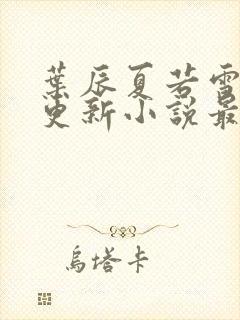 葉辰夏若雪
更新小說最
烏塔卡